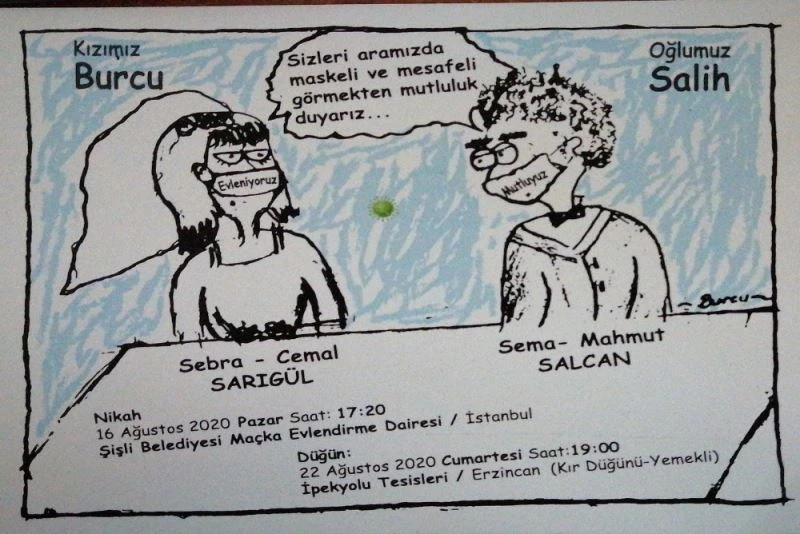 Kızımız
Burcu
Sizleri aramızda
maskeli ve mesafeli
görmekten mutluluk
duyarız...
Oğlumuz
Salih
Evleniyoruz
Mutluyuz
~Burcu~
Sebra - Cemal
SARIGÜL
Sema- Mahmut
SALCAN
Nikah
16 Ağustos 2020 Pazar Saat: 17:20
Şişli Belediyesi Maçka Evlendirme Dairesi / İstanbul
Düğün:
22 Ağustos 2020 Cumartesi Saat:19:00
İpekyolu Tesisleri / Erzincan (Kır Düğünü-Yemekli)